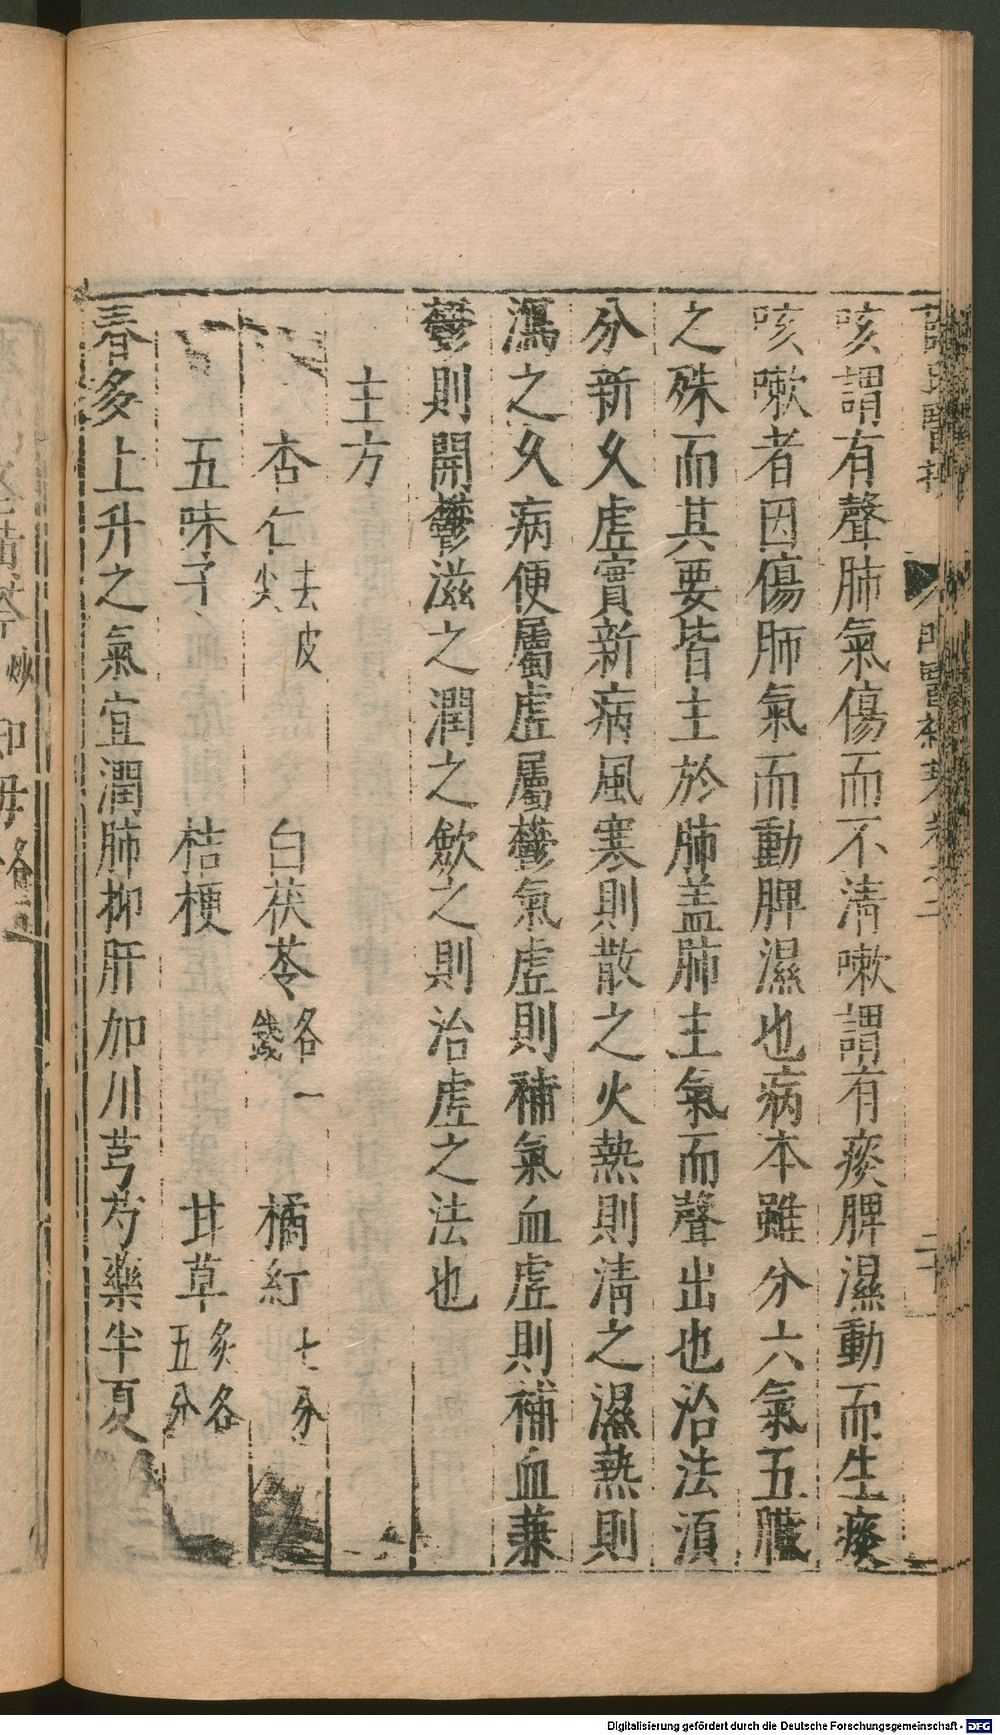 咳謂有聲肺氣傷而不清嗽謂有痰脾濕動而生痰
咳嗽者因傷肺氣而動脾濕也病本雖分六氣五臟
之殊而其要皆主於肺盖肺主氣而聲出也治法須
分新久虛實新病風寒則散之火熱則清之濕熱則
瀉之久病便屬虛屬鬱氣虛則補氣血虛則補血兼
鬱則開鬱滋之潤之歛之則治虛之法也
主方
杏仁 去皮尖 白茯苓 各一錢 橘紅 七分
五味子 桔梗 甘草 炙各五分
春多上升之氣宜潤肺抑肝加川芎芍藥半夏
Digitalisierung gefördert durch die Deutsche Forschungsgemeinschaft - DFG